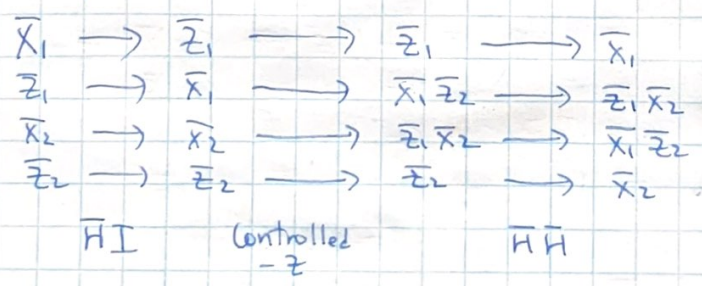 X̄₁ → Z̄₁ → Z̄₁ → X̄₁
Z̄₁ → X̄₁ → X̄₁ Z̄₂ → Z̄₁ X̄₂
X̄₂ → X̄₂ → Z̄₁ X̄₂ → X̄₁ Z̄₂
Z̄₂ → Z̄₂ → Z̄₂ → X̄₂
H̄ I Controlled H̄ H̄
- Z